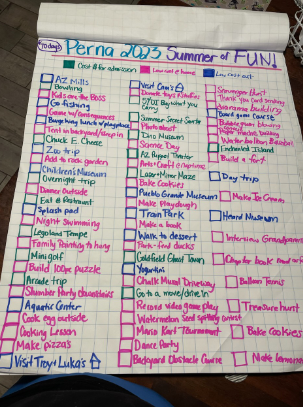 70 days
Perna 2023 Summer of FUN!
Cost $ for admission
Low cost @ home
Low cost out
AZ Mills
Bowling
Kids are the Boss
Go fishing
Game w/ consequences
Bungie
Tent in backyard/sleep in
Chuck E. Cheese
Zoo trip
Add to rock garden
Children's Museum
Overnight trip
Dance outside
Eat @ Restaurant
Splash pad
Night Swimming
Legoland Tempe
Family Painting to hang
Minigolf
Build 100pc puzzle
Arcade trip
Slumber Party Downstairs
Aquatic Center
Cook egg outside
Cooking Lesson
Make pizza's
Visit Troy + Luka's
Visit
Donate toys
5/01 Bay what you carry
Summer Secret Santa
Photo shoot
Dino Museum
Science Day
AZ Puppet Theater
Arts + Craft
Laser + Mirror Maze
Bake Cookies
Pueblo Grande Museum
Make Playdough
Train Park
Make a book
Walk to dessert
Park - find ducks
Goldfield Ghost Town
Yogurtini
Chalk Mural Driveway
Go to a movie/drive in
Record video game play
Watermelon Seed spitting contest
Mario Kart Tournament
Dance Party
Backyard Obstacle Course
Scavenger Hunt
Thank you card sending
Board game
Water balloon Baseball
Enchanted Island
Build a fort
Day trip
Make Ice Cream
Heard Museum
Interview Grandparents
Balloon Tennis
Treasure hunt
Bake Cookies
Make